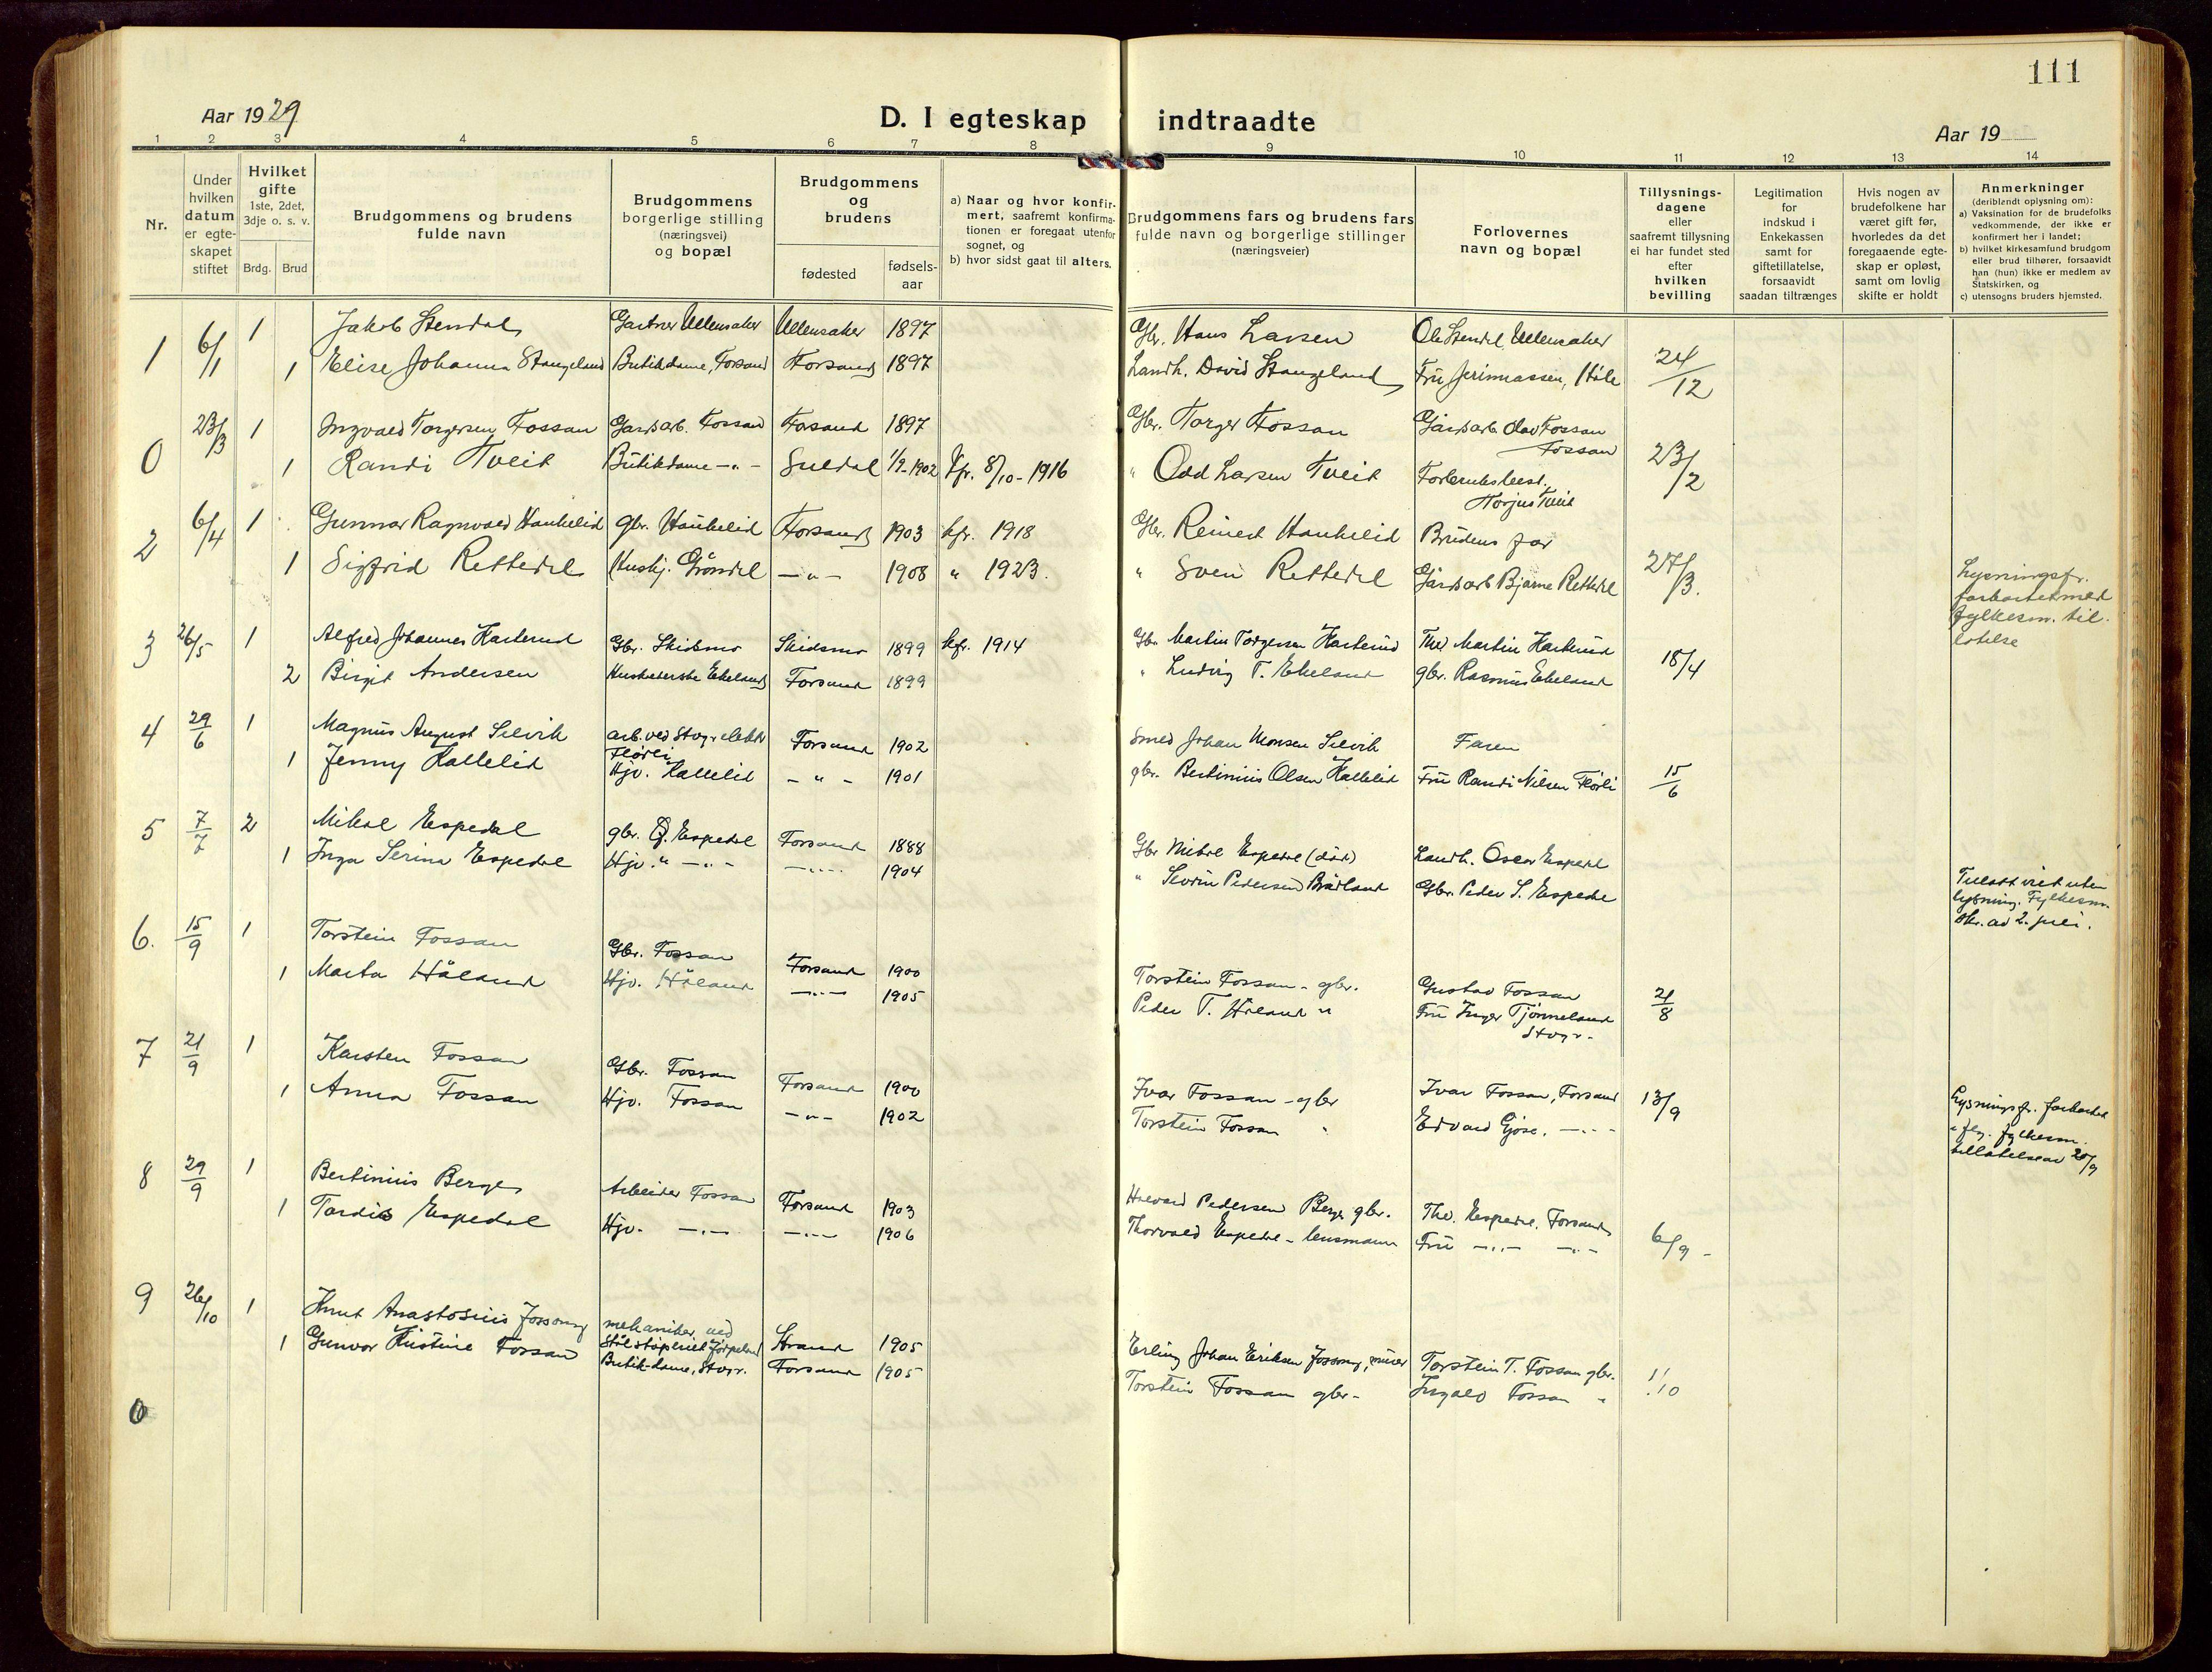 111
Aar 1929
D. I egteskap indtraadte
Aar 19
1 2 3 4 5 6 7 8 9 10 11 12 13 14
Nr.
Under hvilken datum er egteskapet stiftet
Hvilket gifte 1ste, 2det, 3dje o. s. v.
Brdg. Brud
Brudgommens og brudens fulde navn
Brudgommens borgerlige stilling (næringsvei) og bopæl
Brudgommens og brudens
fødested
fødselsaar
a) Naar og hvor konfirmert, saafremt konfirmationen er foregaat utenfor sognet, og
b) hvor sidst gaat til alters.
Brudgommens fars og brudens fars fulde navn og borgerlige stillinger (næringsveier)
Forlovernes navn og bopæl
Tillysningsdagene eller saafremt tillysning ei har fundet sted efter hvilken bevilling
Legitimation for indskud i Enkekassen samt for giftetillatelse, forsaavidt saadan tiltrænges
Hvis nogen av brudefolkene har været gift før, hvorledes da det foregaaende egteskap er opløst, samt om lovlig skifte er holdt
Anmerkninger (deriblandt oplysning om):
a) Vaksination for de brudefolks vedkommende, der ikke er konfirmert her i landet;
b) hvilket kirkesamfund brudgom eller brud tilhører, forsaavidt han (hun) ikke er medlem av Statskirken, og
c) utensogns bruders hjemsted.
1 6/1 1 Jakob Stendal Gartner Ullensaker Ullensaker 1897 Gbr. Hans Larsen Ole Stendal, Ullensaker 24/12
1 Elise Johanna Stangeland Butikdame, Forsand Forsand 1897 Landh. David Stangeland Fru
0 23/3 1 Ingvald Torgersen Fossan Gardsarb. Fossan Forsand 1897 Gbr. Torger Fossan Gårdsarb. Olav Fossan Fossan 23/2
1 Randi Tveit Butikdame -"- Suldal 1/9-1902 Kfr. 8/10-1916 " Odd Larsen Tveit Torjus Tveit
2 6/4 1 Gunnar Ragnvald Haukelid gbr. Haukelid Forsand 1903 kfr. 1918 Gbr. Reinert Haukelid Brudens far 27/3.
1 Sigfrid Rettedal Hushj. Gröndal -"- 1908 " 1923. " Sven Rettedal Gårdsarb Bjarne Rettedal
Lysningsfr. forkortet med fylkesm. tillatelse
3 26/5 1 Alfred Johannes Hasterud Gbr. Skidsmo Skidsmo 1899 kfr. 1914 Gbr. Martin Torgersen Hasterud Martin Hasterud 18/4
2 Birgit Andersen Husholderske Ekeland Forsand 1899 " Ludvig T. Ekeland gbr. Rasmus Ekeland
4 29/6 1 Magnus August Selvik arb. ved Stvgr. elektr Flörli Forsand 1902 Smed Johan Monsen Selvik Faren 15/6
1 Jenny Hallelid Hjv. Hallelid -"- 1901 gbr. Bertinius Olsen Hallelid Fru Randi Nilsen Flörli
5 7/7 2 Mikal Espedal gbr. Espedal Forsand 1888 Gbr Mikal Espedal (död) Landh. Oscar Espedal
1 Inga Serina Espedal Hjv. " -"- -"- 1904 " Sevrin Pedersen Bråtland Gbr. Peder S. Espedal
Tillatt viet uten lysning. Fylkesm. skr. av 2. juli.
6. 15/9 1 Torstein Fossan Gbr. Fossan Forsand 1900 Torstein Fossan - gbr. Gustav Fossan 21/8
1 Marta Håland Hjv. Håland -"- 1905 Peder T. Håland " Fru Inger Tjönneland Stvgr.
7 21/9 1 Karsten Fossan Gbr. Fossan Forsand 1900 Ivar Fossan - gbr Ivar Fossan, Forsand 13/9
1 Anna Fossan Hjv. Fossan -"- 1902 Torstein Fossan " Edvard Gjöse, -"-
Lysningsfr. forkortet ifg. fylkesm. tillatelse av 20/9
8 29/9 1 Bertinius Berge Arbeider Fossan Forsand 1903 Halvard Pedersen Berge gbr. Tho. Espedal, Forsand 6/9 -
1 Tordis Espedal Hjv. -"- -"- 1906 Thorvald Espedal - lensmann Fru -"- -"-
9 26/10 1 Knut Anastosius Jössang mekaniker ved Stålstöperiet Jörpeland Strand 1905 Erling Johan Eriksen Jössang, murer Torstein T. Fossan gbr. 11/10
1 Gunvor Kristine Fossan Butik-dame, Stvgr. Forsand 1905 Torstein Fossan gbr - Ingald Fossan "
0